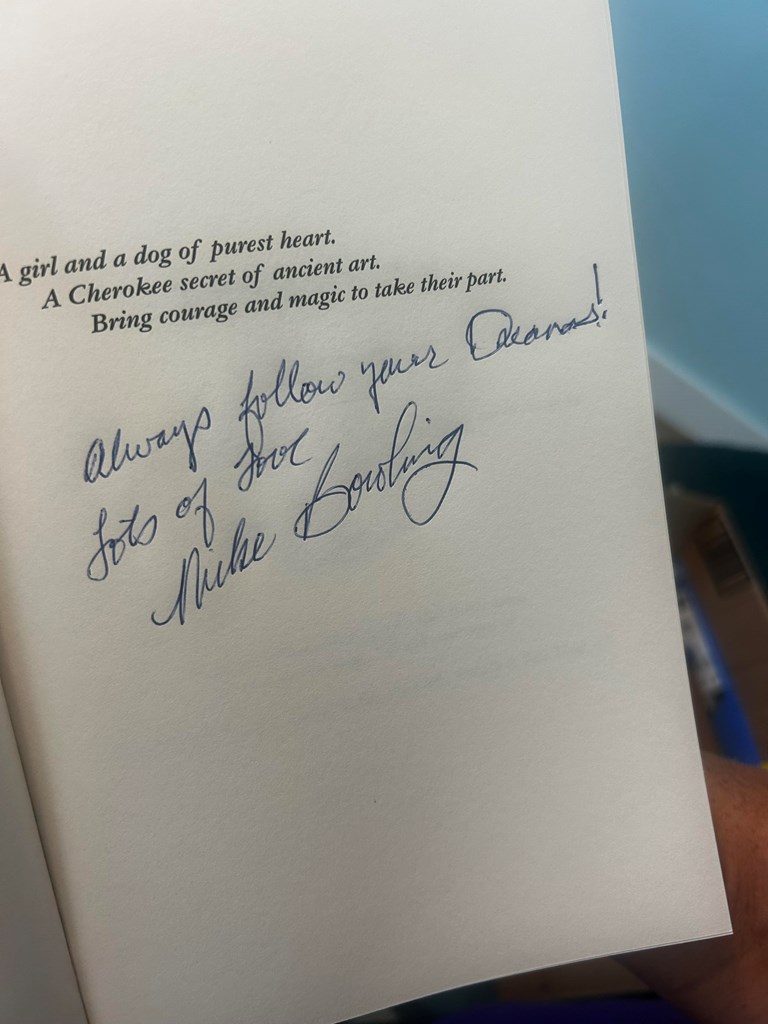 A girl and a dog of purest heart.
A Cherokee secret of ancient art.
Bring courage and magic to take their part.
Always follow your Dreams!
Lots of Love
Mike Bowling